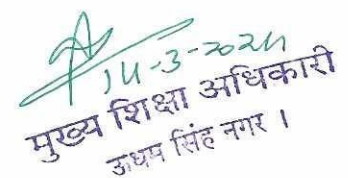 14-3-2024
मुख्य शिक्षा अधिकारी
ऊधम सिंह नगर ।